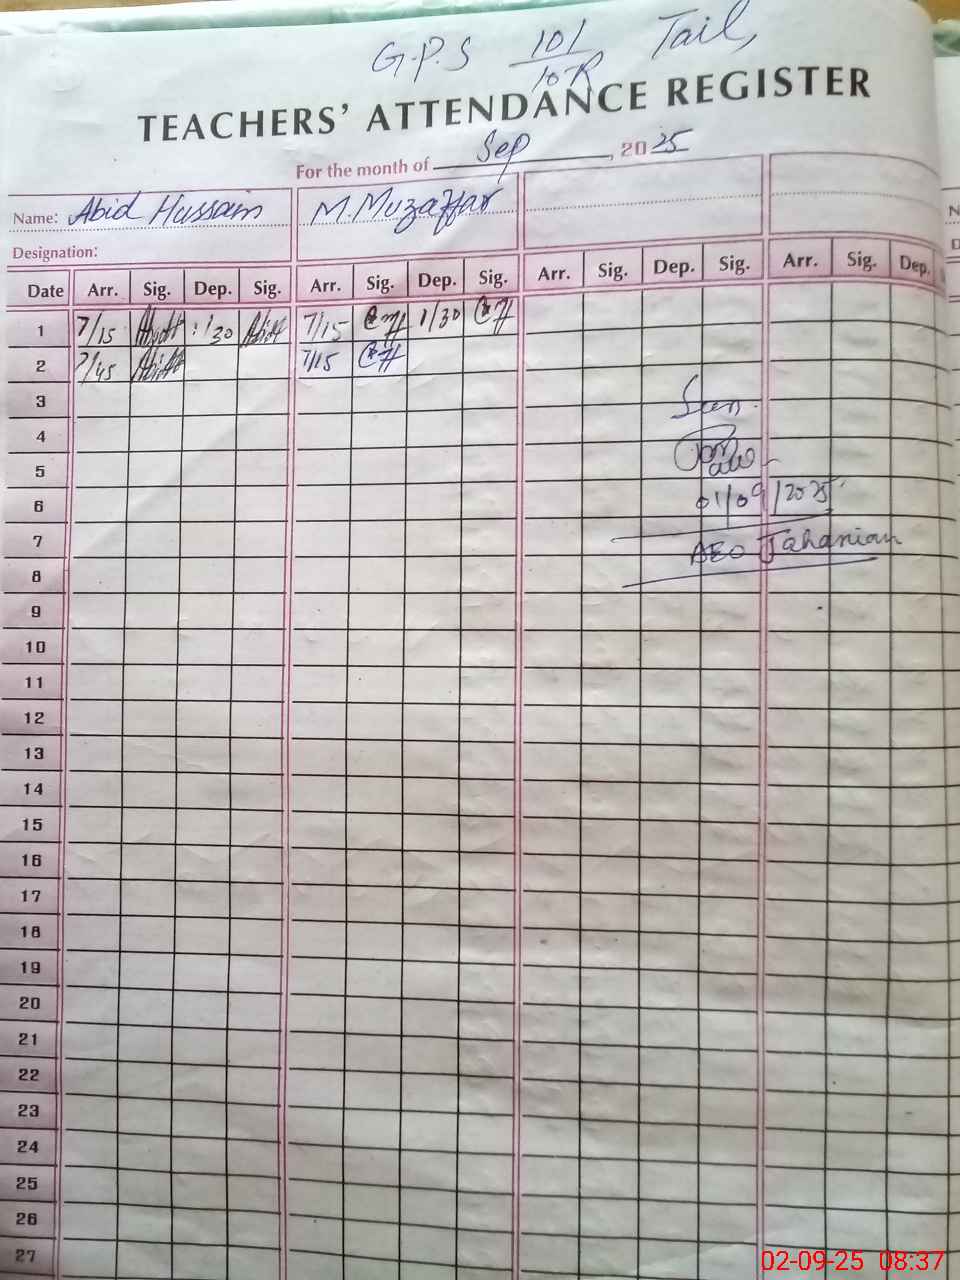 G.P.S 101/10R Tail,
TEACHERS' ATTENDANCE REGISTER
For the month of Sep, 2025
Name: Abid Hussain M.Muzaffar
Designation:
Date Arr. Sig. Dep. Sig. Arr. Sig. Dep. Sig. Arr. Sig. Dep. Sig. Arr. Sig. Dep.
1 7/15 1/30 7/15 1/30
2 7/45 7/15
3
4
5
6 01/09/2025
7 AEO Jahanian
8
9
10
11
12
13
14
15
16
17
18
19
20
21
22
23
24
25
26
27
02-09-25 08:37